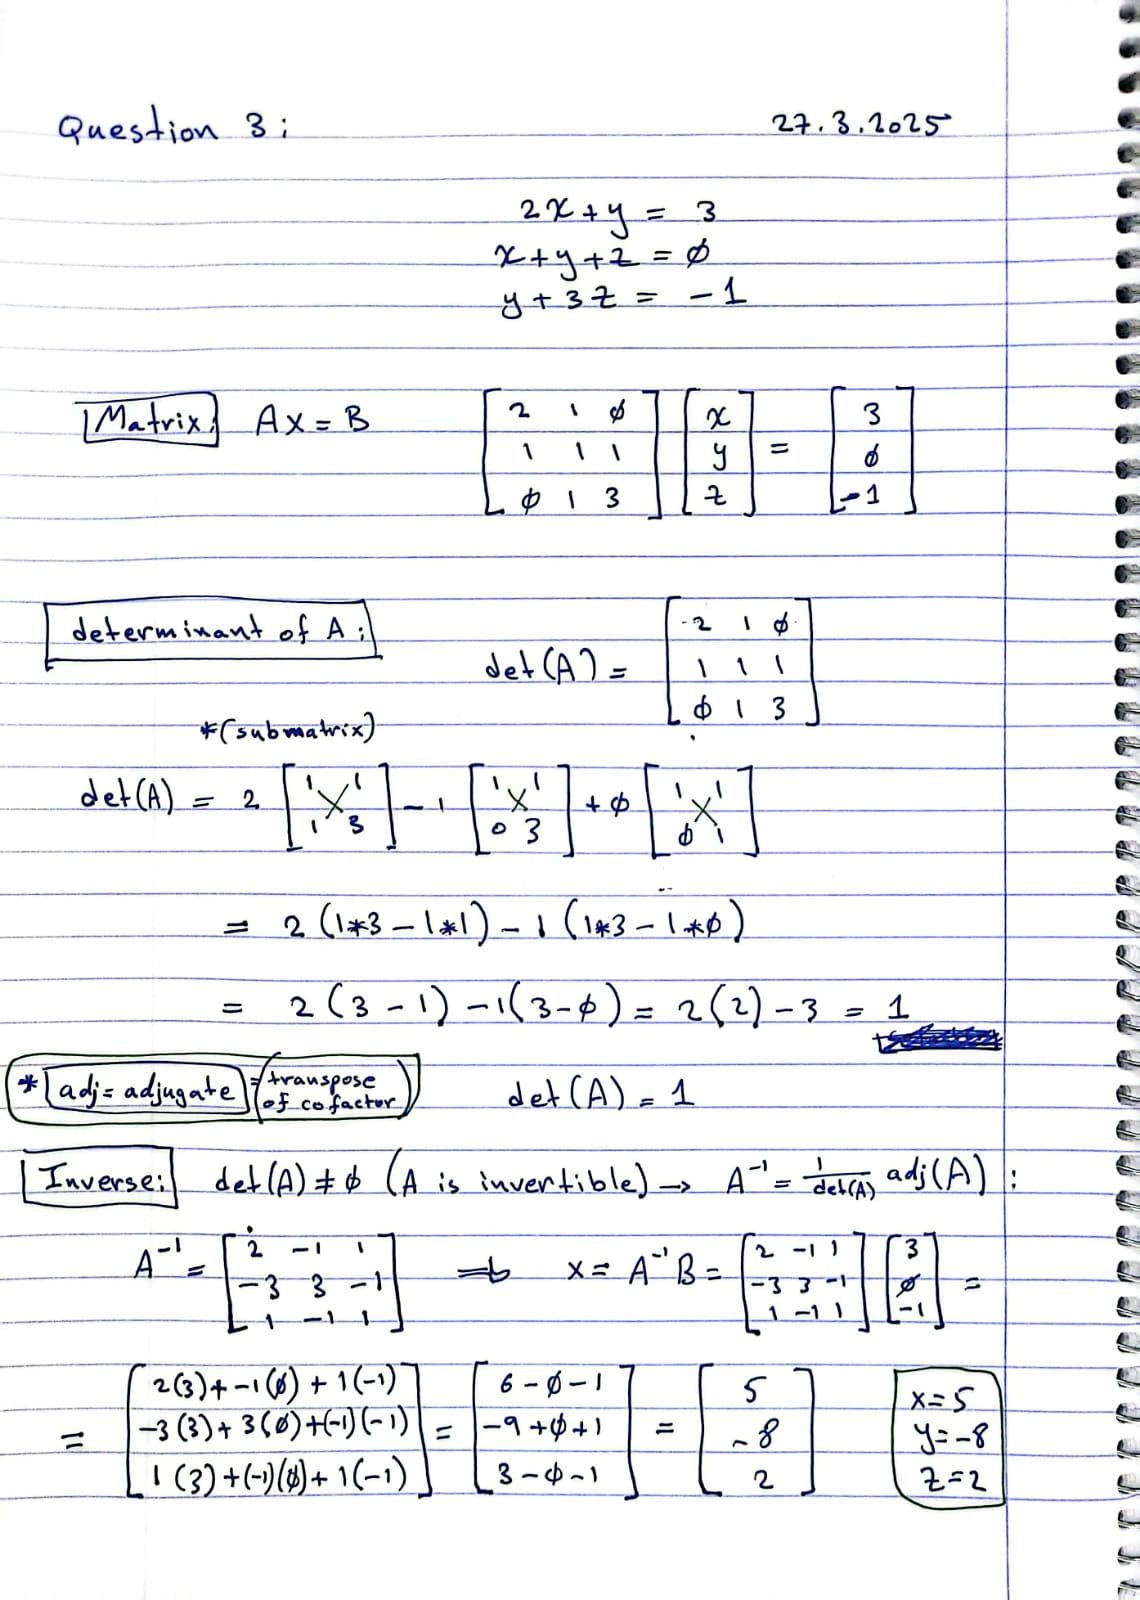 Question 3: 27.3.2025
2x+y = 3
x+y+z = ∅
y+3z = -1
Matrix: AX = B [2 1 ∅; 1 1 1; ∅ 1 3] [x; y; z] = [3; ∅; -1]
determinant of A: det(A) = [2 1 ∅; 1 1 1; ∅ 1 3]
*(submatrix)
det(A) = 2 [1 1; 1 3] - 1 [1 1; 0 3] + ∅ [1 1; ∅ 1]
= 2 (1*3 - 1*1) - 1 (1*3 - 1*∅)
= 2 (3 - 1) - 1(3-∅) = 2(2) - 3 = 1
* adj = adjugate = (transpose of cofactor) det(A) = 1
Inverse: det(A) ≠ ∅ (A is invertible) → A⁻¹ = 1/det(A) adj(A) :
A⁻¹ = [2 -1 1; -3 3 -1; 1 -1 1] ⇒ x = A⁻¹B = [2 -1 1; -3 3 -1; 1 -1 1] [3; ∅; -1] =
= [2(3)+-1(∅)+1(-1); -3(3)+3(∅)+(-1)(-1); 1(3)+(-1)(∅)+1(-1)] = [6-∅-1; -9+∅+1; 3-∅-1] = [5; -8; 2]
x=5
y=-8
z=2